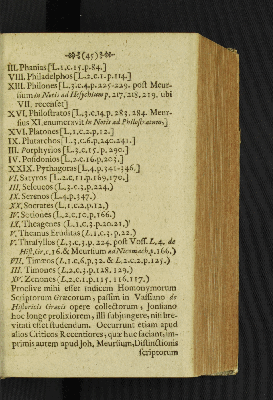 (45)
III. Phanias [L.1.c.15.p.84.]
VIII. Philadelphos [L.2.c.1.p.114.]
XIII. Philones [L.3.c.4.p.225-229. post Meur-
sium in Notis ad Hesychium p.217.218.219. ubi
VII. recenset]
XVI. Philostratos [L.3.c.14.p.283.284. Meur-
sius XI. enumeravit in Notis ad Philostratum,]
XVI. Platones [L.1.c.2.p.12.]
IX. Plutarchos [L.3.c.6.p.240.241.]
III. Porphyrios [L.3.c.15.p.290.]
IV. Posidonios [L.2.c.16.p.203.]
XXIX. Pythagoras [L.4.p.341-346.]
VI. Satyros [L.2.c.11.p.169.170.]
III. Seleucos (L.3.c.3.p.224.)
IX. Serenos (L.4.p.347.)
XX. Socrates (L.1.c.2.p.12,)
IV. Sotiones (L.2.c.10.p.166.)
IX. Theagenes (L.1.c.3.p.20.21,)
V. Thomas Eruditas (L.1.c.3.p.22.)
V. Thrasyllos (L.3.c.3.p.224. post Voss. L.4. de
Hist. Gr. c.16. & Meursium ad Nicomach. p.166.)
VII. Timæos (L.1.c.6.p.32. & L.2.c.2.p.125.)
III. Timones (L.2.c.3.p.128.129.)
XV. Zenones (L.2.c.1.p.115.116.117.)
Proclive mihi esset indicem Homonymorum
Scriptorum Græcorum, passim in Vossiano de
Historicis Græcis opere collectorum, Jonsiano
hoc longe prolixiorem, illi subjungere, nisi bre-
vitati esset studendum. Occurrunt etiam apud
alios Criticos Recentiores, quæ huc faciant, im-
primis autem apud Joh. Meursium, Distinctionis
scriptorum